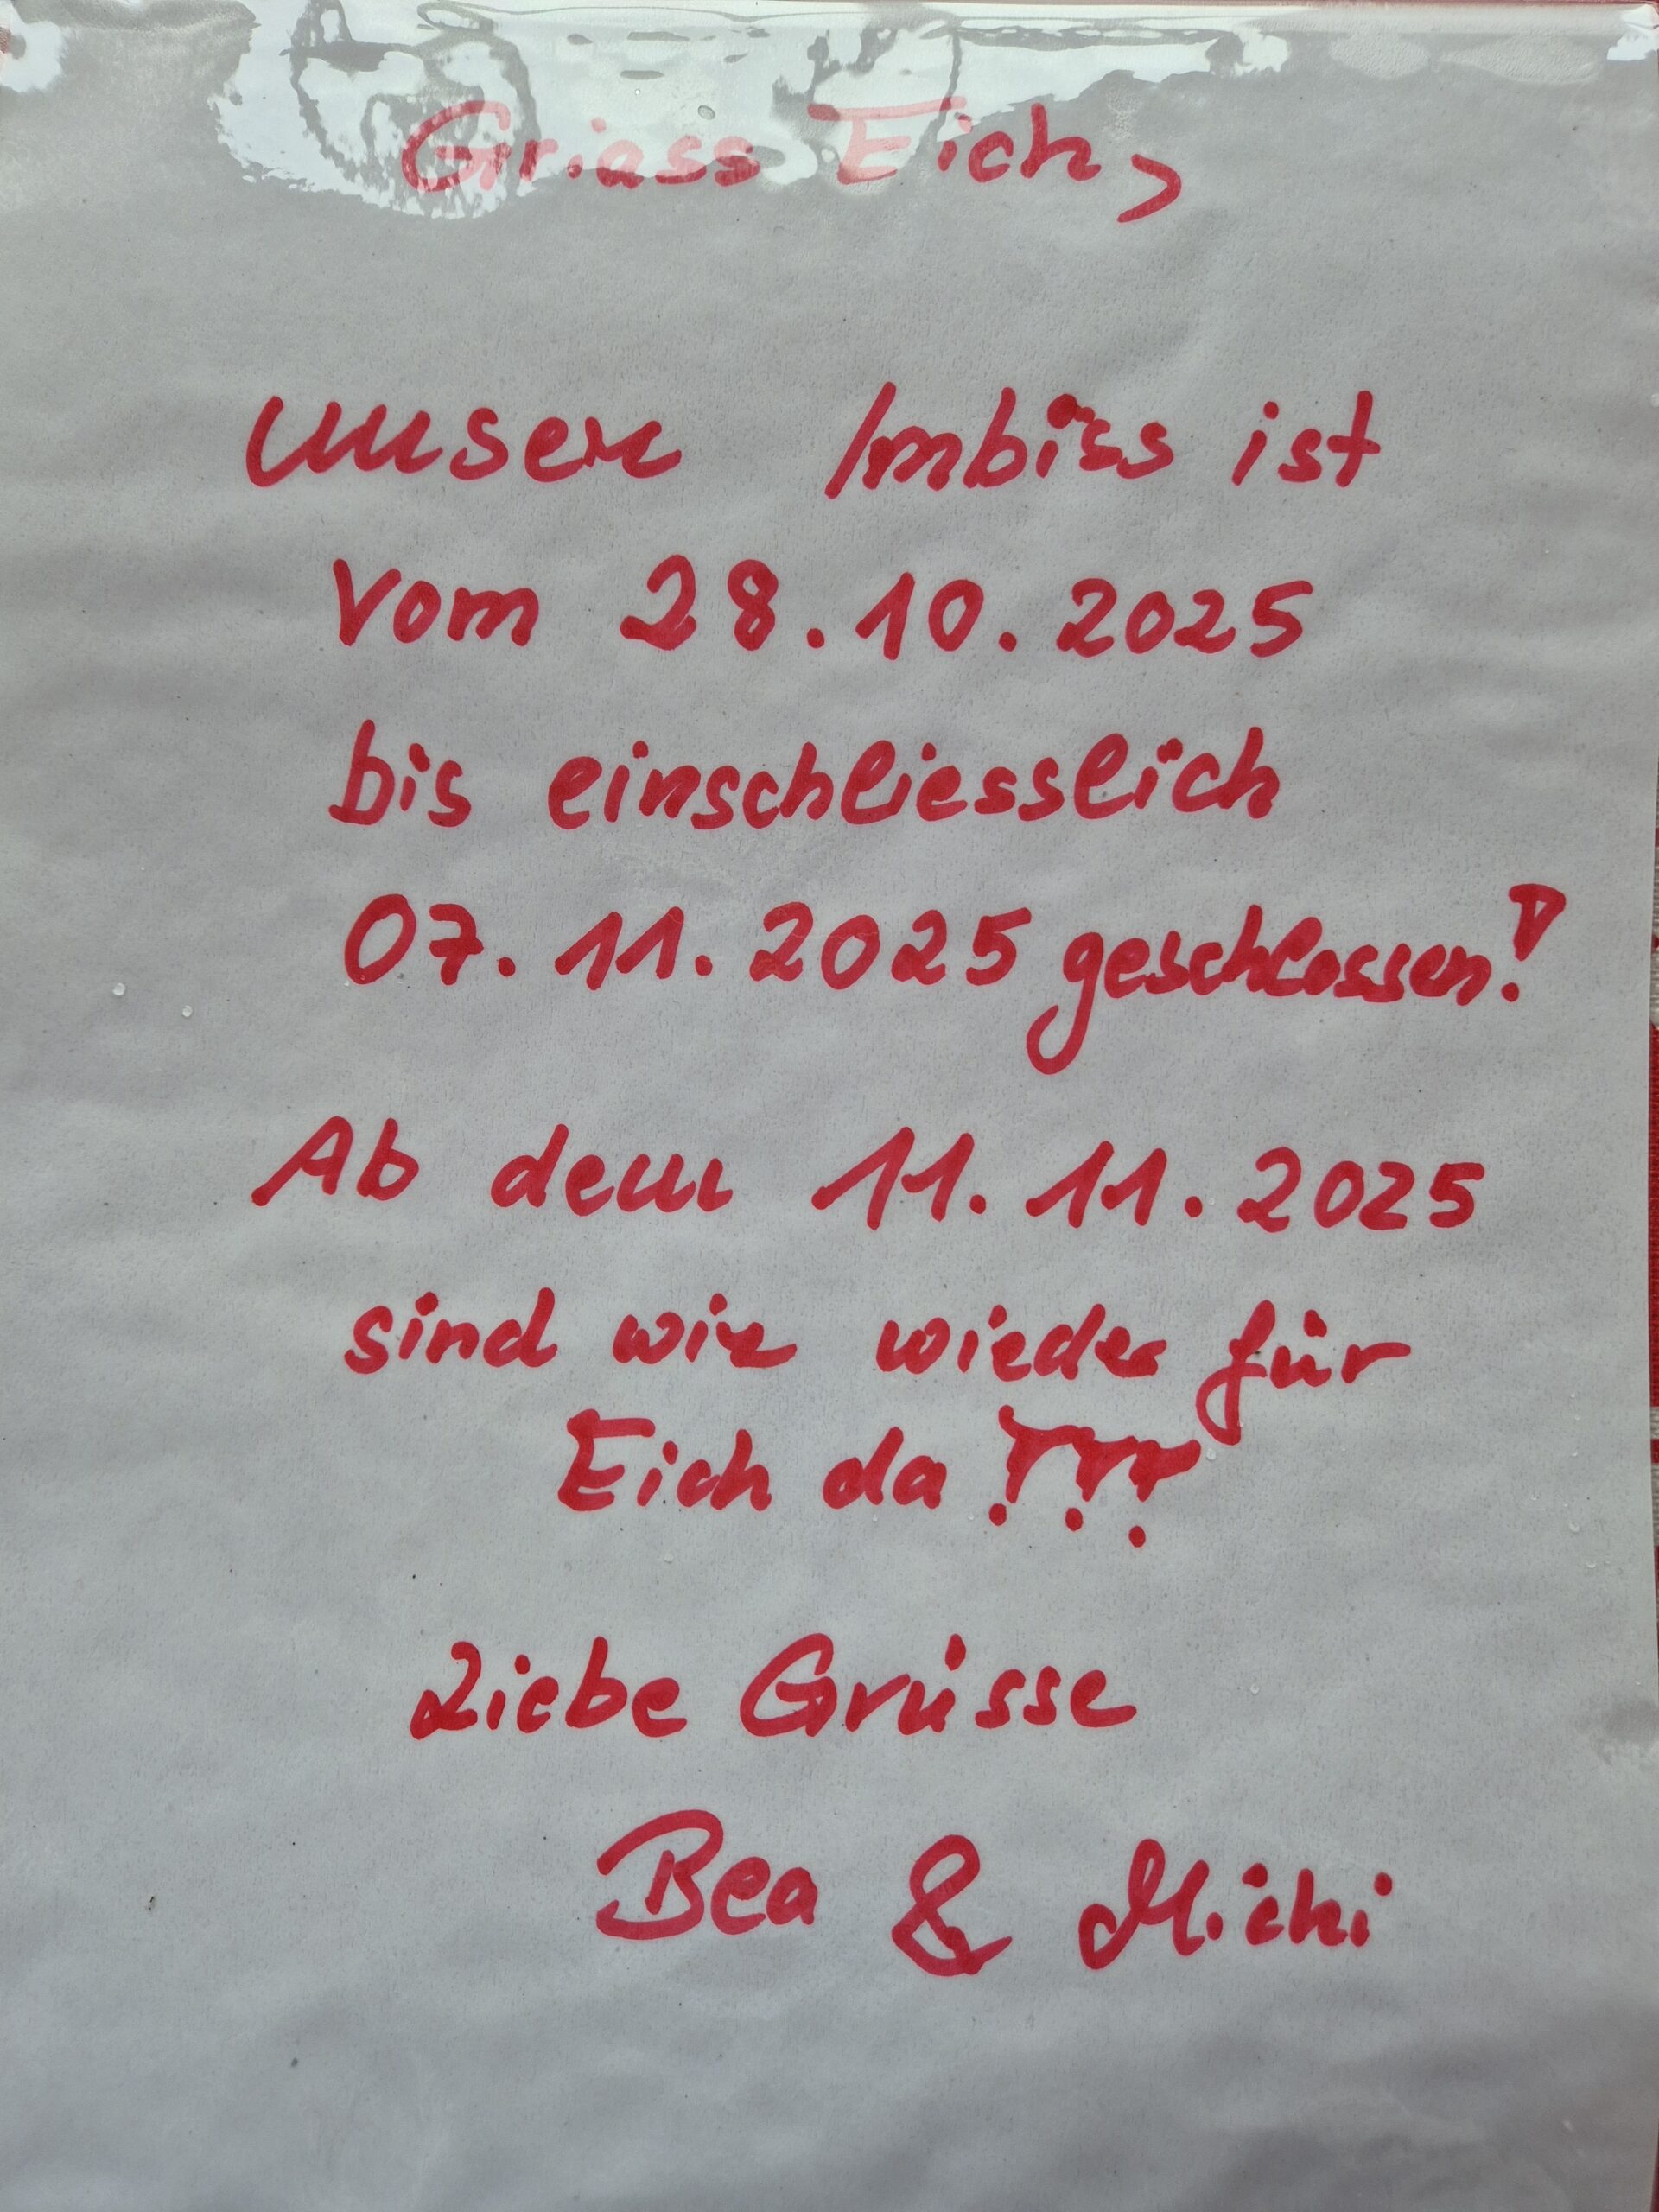 Griass Eich,
unser Imbiss ist
vom 28.10.2025
bis einschliesslich
07.11.2025 geschlossen!
Ab dem 11.11.2025
sind wir wieder für
Eich da!!!
Liebe Grüsse
Bea & Michi